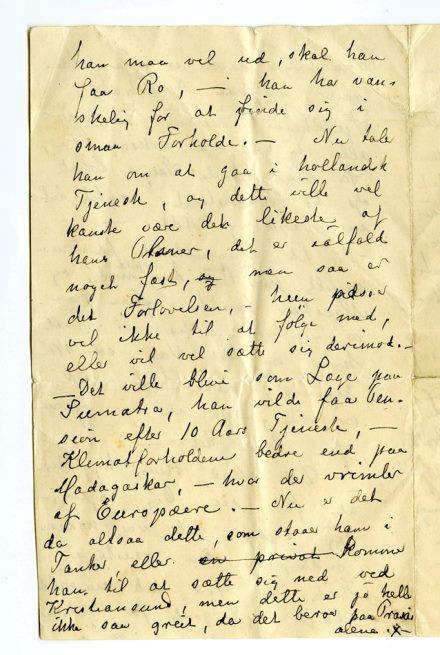 han maa vel ud, skal han
faa Ro, — han har van-
skelig for at finde sig i
smaa Forholde. — Nu tale
han om at gaa i hollandsk
Tjeneste, og dette ville vel
kanske være det likeste af
hans Planer, det er iálfald
noget fast, og men saa er
det Forlovelsen, — hun pidsr
vel ikke til at følge med,
eller vil vel sætte sig derimod. —
— Det ville blive som Læge paa
Sumatra, han vilde faa Pen-
sion efter 10 Aars Tjeneste, —
Klimatforholdene bedre end paa
Madagaskar, — hvor der vrimler
af Europæere. — Nu er det
da altsaa dette, som staar ham i
Tanker, eller en privat Komme
han til at sætte sig ned ved
Kristiansund, men dette er jo heller
ikke saa greit, da det beror paa Praxis
alene. X